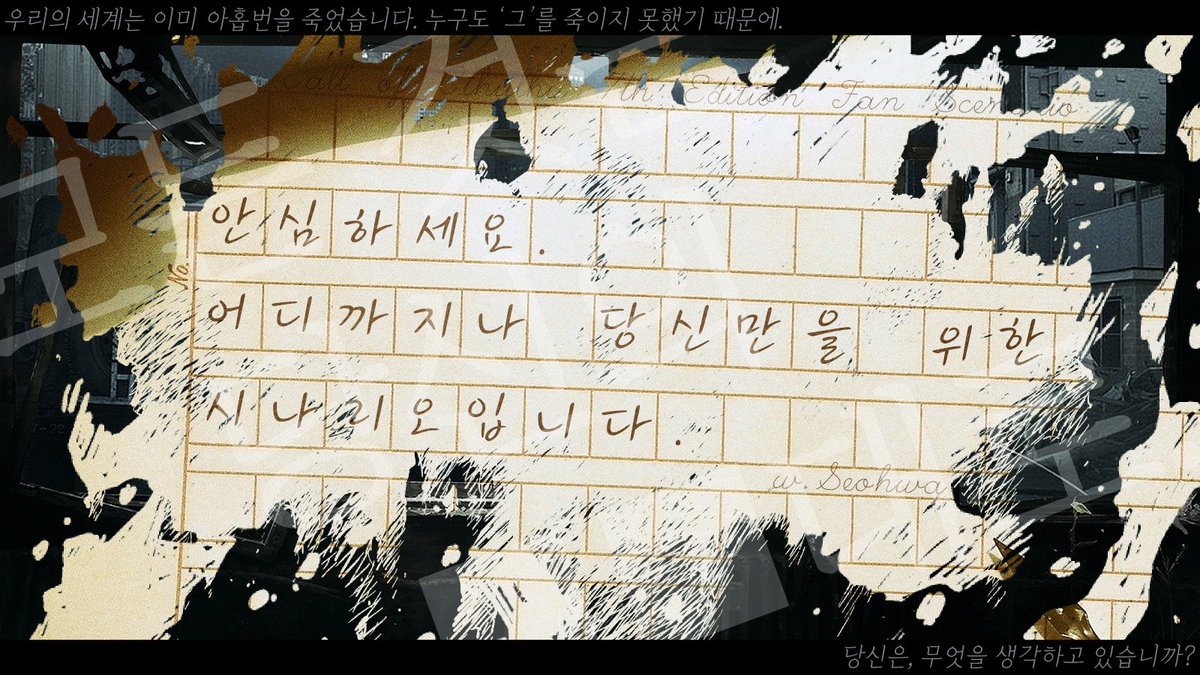 우리의 세계는 이미 아홉번을 죽었습니다. 누구도 ‘그’를 죽이지 못했기 때문에.
7th Edition Fan Scenario
No.
안심하세요.
어디까지나 당신만을 위한
시나리오입니다.
w. Seohwa
당신은, 무엇을 생각하고 있습니까?